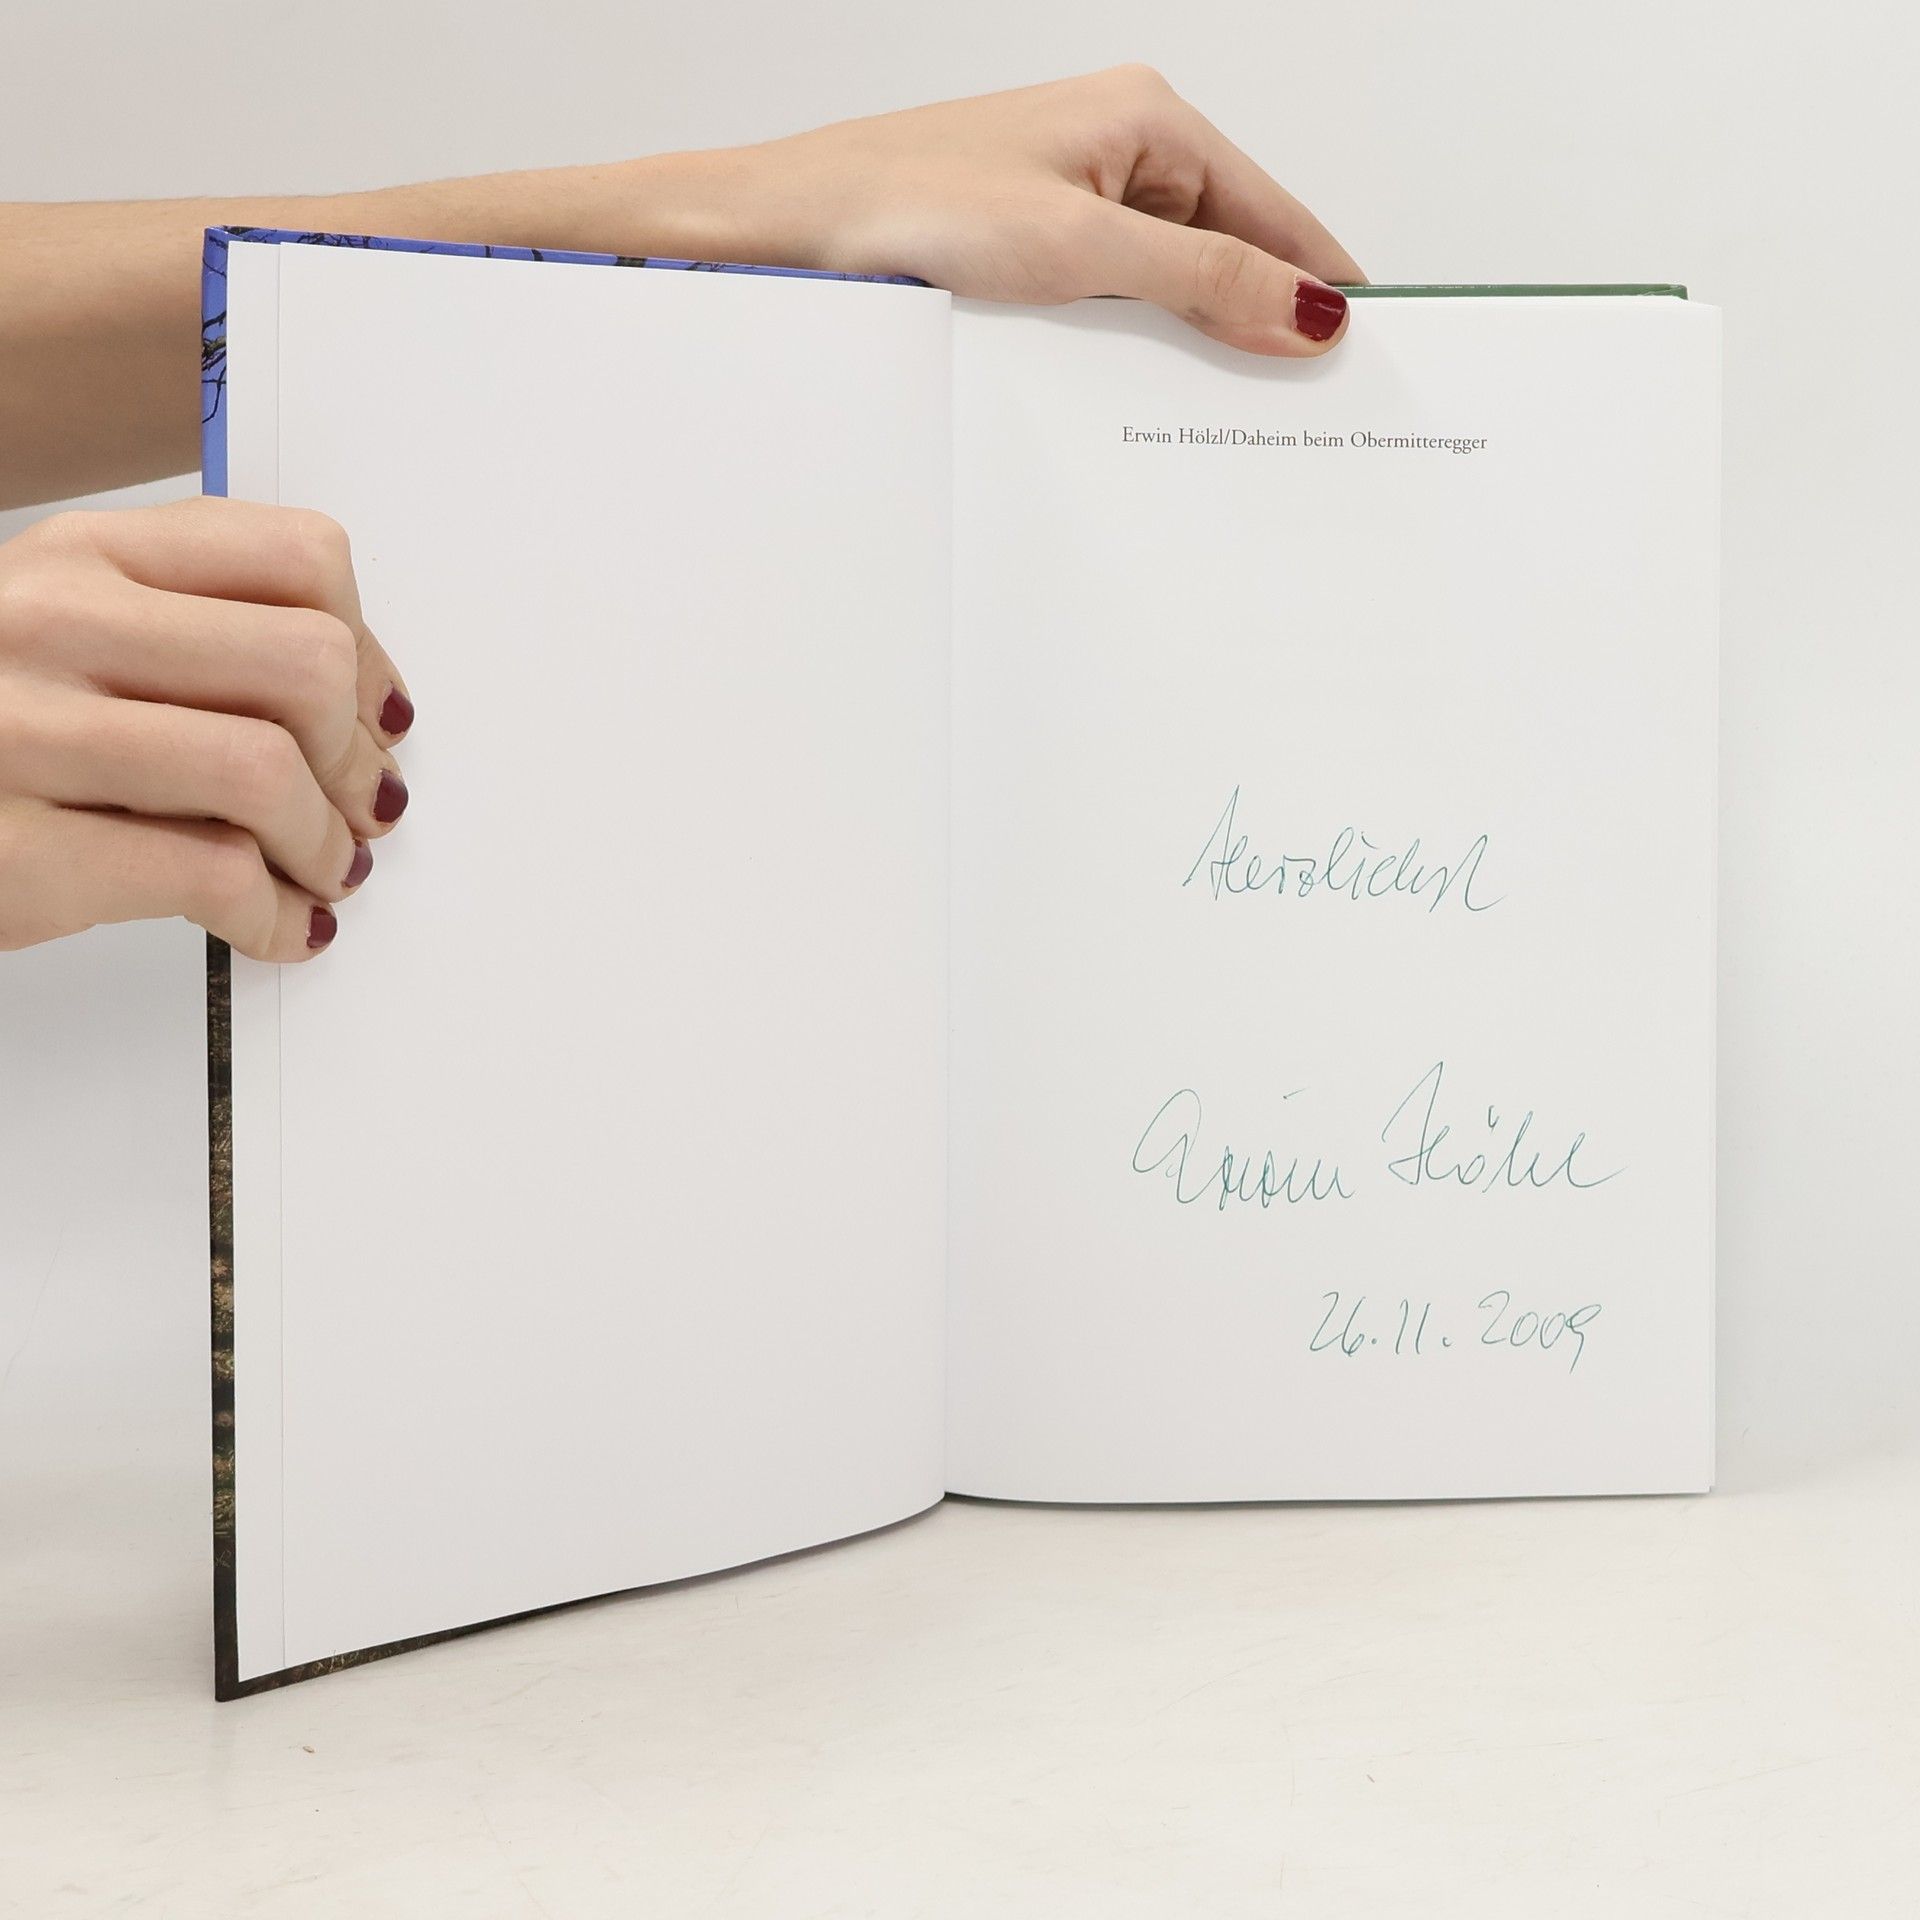 Erwin Hölzl/Daheim beim Obermitteregger
Herzlichst
Erwin Hölzl
26.11.2009